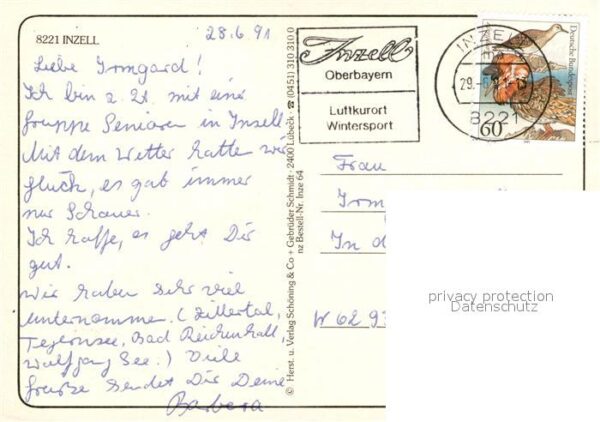 8221 INZELL
28.6.91
Liebe Irmgard!
Ich bin z. Zt. mit einer
Gruppe Senioren in Inzell.
Mit dem Wetter hatten wir
Glück, es gab immer
nur Schauer.
Ich hoffe, es geht Dir
gut.
Wir haben sehr viel
unternommen. (Zillertal,
Tegernsee, Bad Reichenhall,
Wolfgang See.) Viele
Grüße sendet Dir Deine
Barbara
© Herst. u. Verlag Schöning & Co + Gebrüder Schmidt · 2400 Lübeck · ☎ (0451) 310 310 0
nz Bestell-Nr. Inze 64
Inzell
Oberbayern
Luftkurort
Wintersport
INZELL
29.
8221
Deutsche Bundespost
60
Frau
Irm
In d
W 82 9
privacy protection
Datenschutz